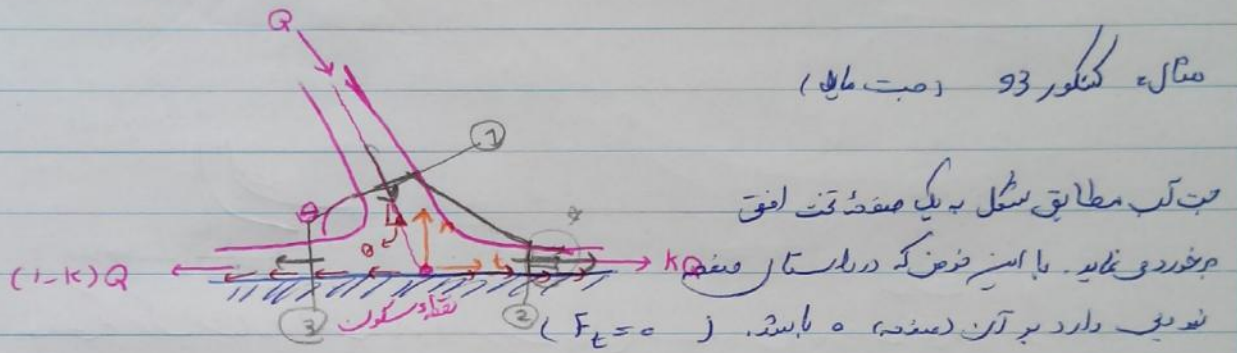 مثال: کنکور 93 (جت مایل)
جت آب مطابق شکل به یک صفحه تخت افقی
برخورد می نماید. با این فرض که در راستای صفحه
نیرویی وارد بر آن (صفحه) ه باشد. (Ft = 0)
Q
1
θ
θ
n
t
kQ
(1-k)Q
3
نقطه سکون
2